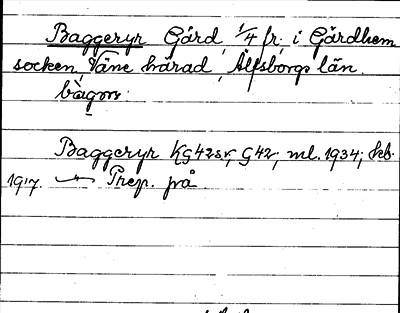 Baggeryr Gård, 1/4 fr. i Gärdhem
socken, Väne härad, Älfsborgs län.
Baggeryr KG42sv, G42, ml. 1934; kb.
1917. Prep. på